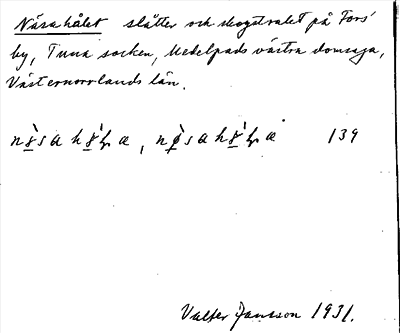 Näsahålet slåtter och skogstrakt på Fors'
by, Tuna socken, Medelpads västra domsaga,
Västernorrlands län.
139
Valter Jansson 1931.